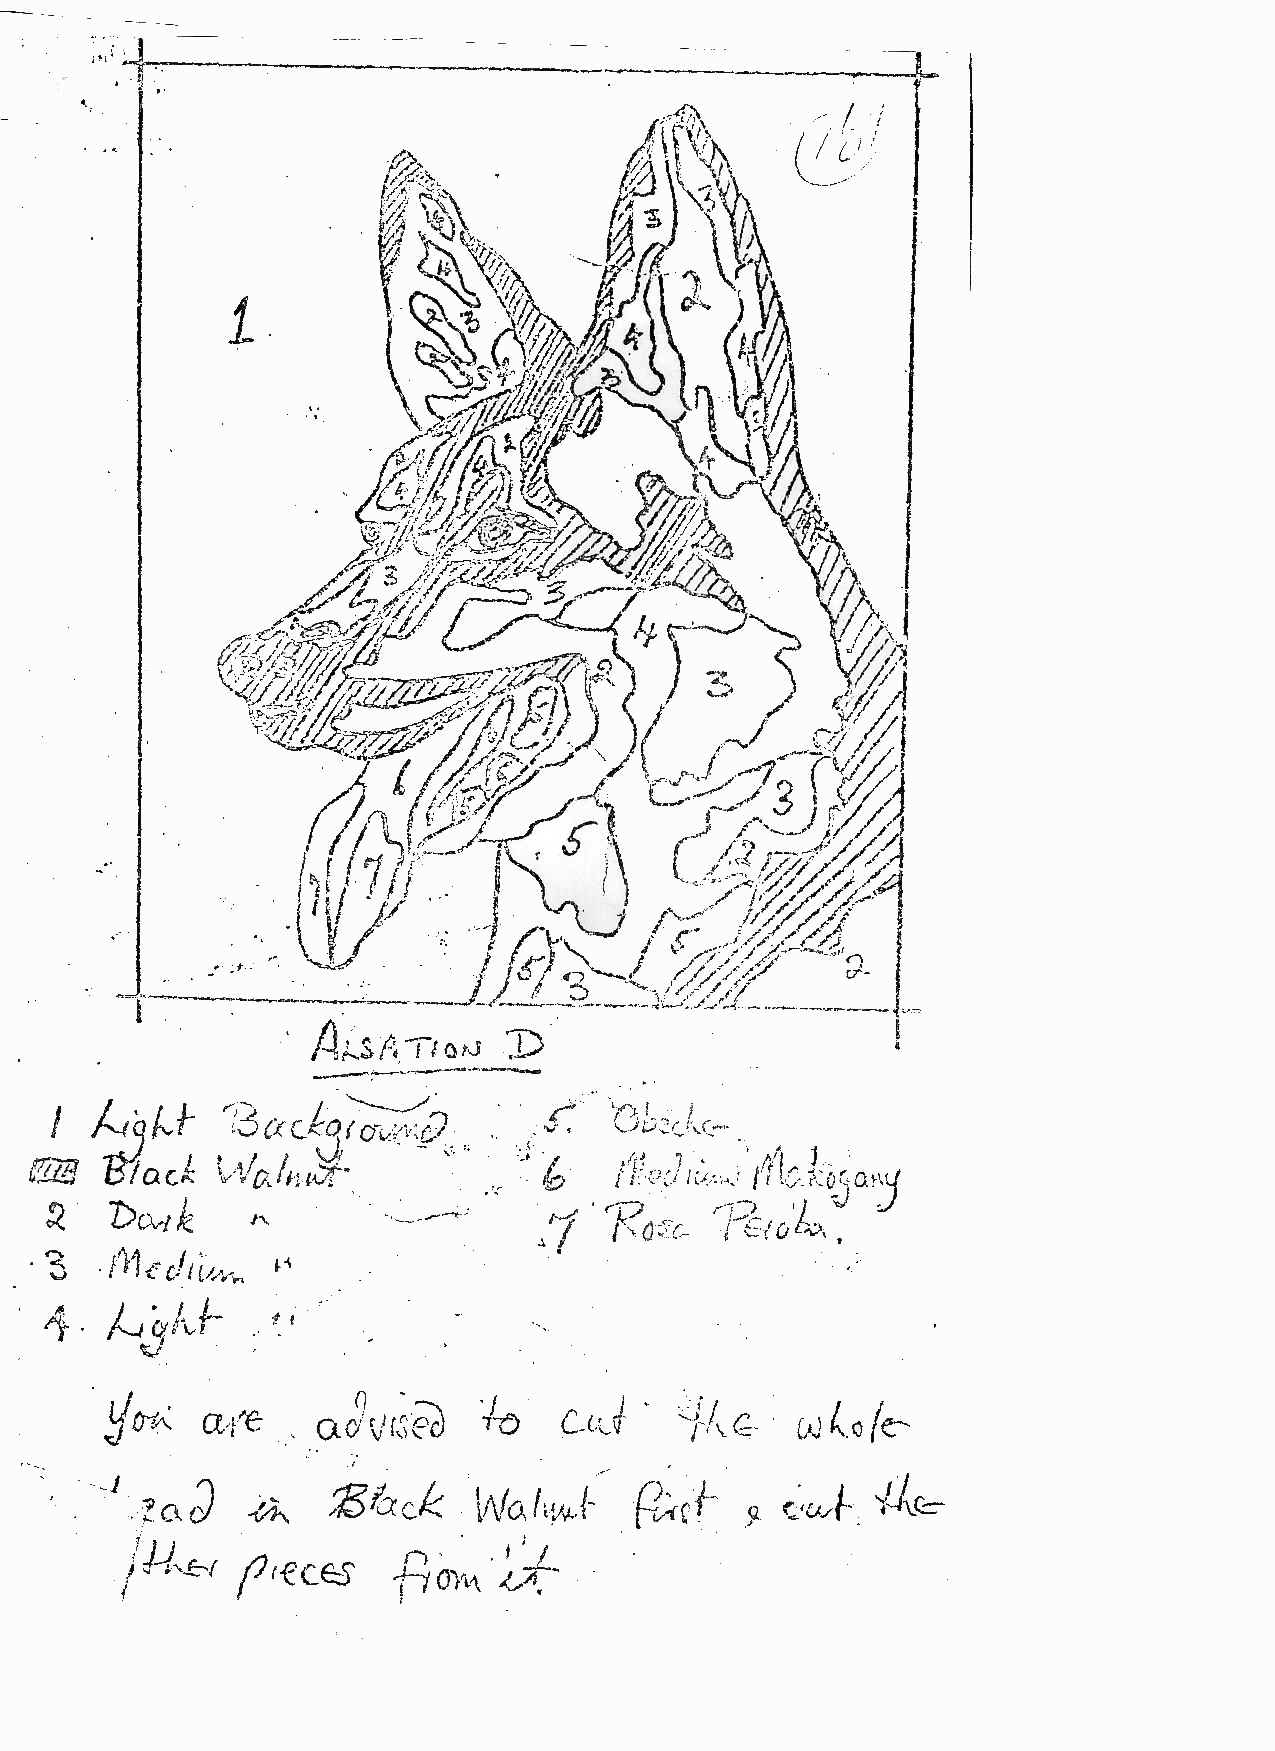 761
3
3
1
4
2
4
3
2
3
4
4
4
3
4
2
4
3
3
4
2
3
6
3
5
7
7
2
5
5
3
2
ALSATION D
1 Light Background
5. Obeche
Black Walnut
6 Medium Mahogany
2 Dark "
7 Rosa Peroba.
3 Medium "
4. Light "
You are advised to cut the whole
in Black Walnut first & cut the
pieces from it.